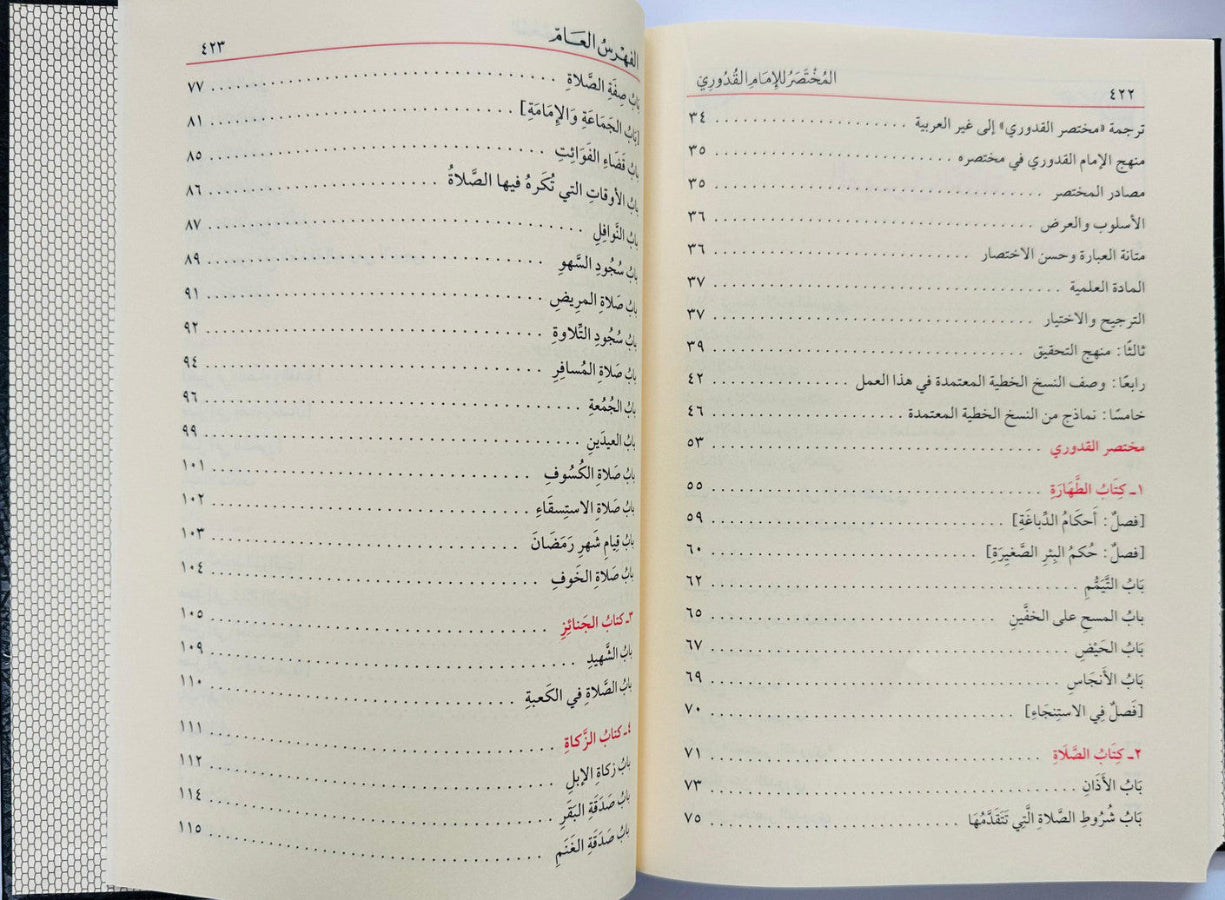 ٤٢٢ المُخْتَصَرُ لِلإِمَامِ القُدُورِيّ
ترجمة «مختصر القدوري» إلى غير العربية ٣٤
منهج الإمام القدوري في مختصره ٣٥
مصادر المختصر ٣٥
الأسلوب والعرض ٣٦
متانة العبارة وحسن الاختصار ٣٦
المادة العلمية ٣٧
الترجيح والاختيار ٣٧
ثالثًا: منهج التحقيق ٣٩
رابعًا: وصف النسخ الخطية المعتمدة في هذا العمل ٤٢
خامسًا: نماذج من النسخ الخطية المعتمدة ٤٦
مختصر القدوري ٥٣
١ـ كِتَابُ الطَّهَارَةِ ٥٥
[فصلٌ: أَحكَامُ الدِّباغَةِ] ٥٩
[فصلٌ: حُكمُ البِئرِ الصَّغِيرَةِ] ٦٠
بَابُ التَّيَمُّمِ ٦٢
بابُ المسحِ على الخفَّينِ ٦٥
بَابُ الحَيْضِ ٦٧
بَابُ الأَنجَاسِ ٦٩
[فَصلٌ فِي الاستِنجَاءِ] ٧٠
٢ـ كِتَابُ الصَّلَاةِ ٧١
بَابُ الأَذَانِ ٧٣
بَابُ شُرُوطِ الصَّلَاةِ الَّتِي تَتَقَدَّمُهَا ٧٥
الفِهْرسُ العَـامّ ٤٢٣
بَابُ صِفَةِ الصَّلاةِ ٧٧
[بَابُ الجَمَاعَةِ وَالإِمَامَةِ] ٨١
بابُ قَضَاءِ الفَوَائِتِ ٨٥
بابُ الأوقاتِ التي تُكرهُ فيها الصَّلاةُ ٨٦
بابُ النَّوافِلِ ٨٧
بابُ سُجُودِ السَّهوِ ٨٩
بابُ صَلاةِ المرِيضِ ٩١
بابُ سُجُودِ التِّلاوةِ ٩٢
بابُ صَلاةِ المُسافِرِ ٩٤
بابُ الجُمُعةِ ٩٦
بابُ العيدَينِ ٩٩
بابُ صَلاةِ الكُسُوفِ ١٠١
بابُ صلاةِ الاستِسقَاءِ ١٠٢
بابُ قِيامِ شَهرِ رَمَضَانَ ١٠٣
بابُ صلاةِ الخَوفِ ١٠٤
٣ـ كتابُ الجَنائِزِ ١٠٥
بابُ الشَّهِيدِ ١٠٩
بابُ الصَّلاةِ في الكَعبةِ ١١٠
٤ـ كتابُ الزَّكاةِ ١١١
بابُ زكاةِ الإبلِ ١١٢
بابُ صَدَقَةِ البَقَرِ ١١٤
بابُ صَدَقَةِ الغَنَمِ ١١٥